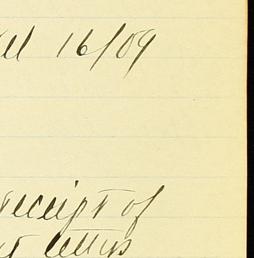 16/09
receipt of
letters